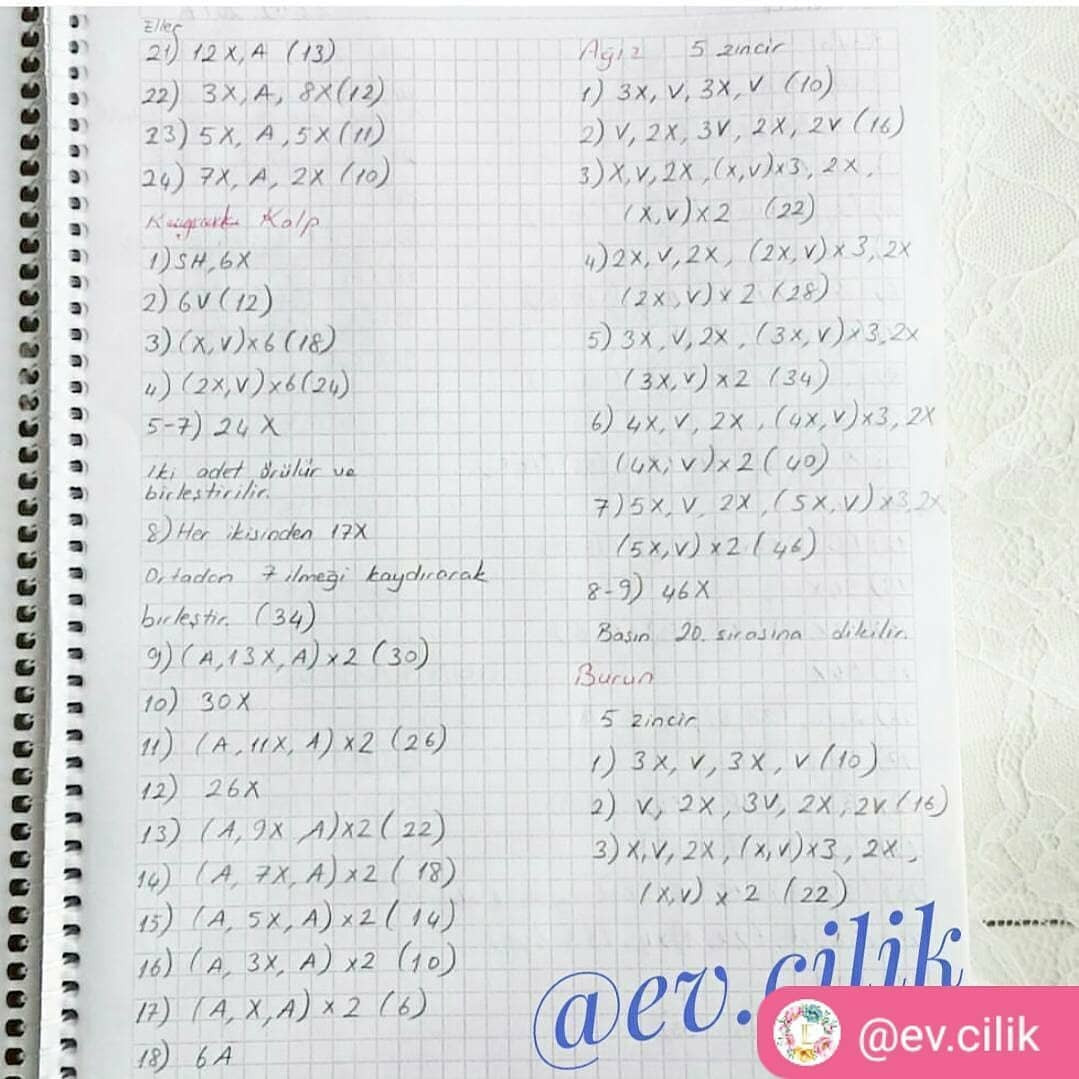 Eller
21) 12X, A (13)
22) 3X, A, 8X(12)
23) 5X, A, 5X(11)
24) 7X, A, 2X (10)
Kalp
1) SH, 6X
2) 6V (12)
3) (X, V)x6 (18)
4) (2X, V)x6(24)
5-7) 24 X
İki adet örülür ve
birleştirilir.
8) Her ikisinden 17X
Ortadan 7 ilmeği kaydırarak
birleştir. (34)
9) (A, 13X, A)x2 (30)
10) 30X
11) (A, 11X, A) x2 (26)
12) 26X
13) (A, 9X A)x2 (22)
14) (A, 7X, A) x2 (18)
15) (A, 5X, A) x2 (14)
16) (A, 3X, A) x2 (10)
17) (A, X, A) x 2 (6)
18) 6A
Ağız 5 zincir
1) 3X, V, 3X, V (10)
2) V, 2X, 3V, 2X, 2V (16)
3) X, V, 2X, (X, V)x3, 2X,
(X, V)x2 (22)
4) 2X, V, 2X, (2X, V)x3, 2X
(2X, V)x2 (28)
5) 3X, V, 2X, (3X, V)x3, 2X
(3X, V)x2 (34)
6) 4X, V, 2X, (4X, V)x3, 2X
(4X, V)x2 (40)
7) 5X, V, 2X, (5X, V)x3, 2X
(5X, V)x2 (46)
8-9) 46X
Başın 20. sırasına dikilir.
Burun
5 zincir
1) 3X, V, 3X, V (10)
2) V, 2X, 3V, 2X, 2V (16)
3) X, V, 2X, (X, V)x3, 2X,
(X, V) x 2 (22)
@ev.cilik
@ev.cilik